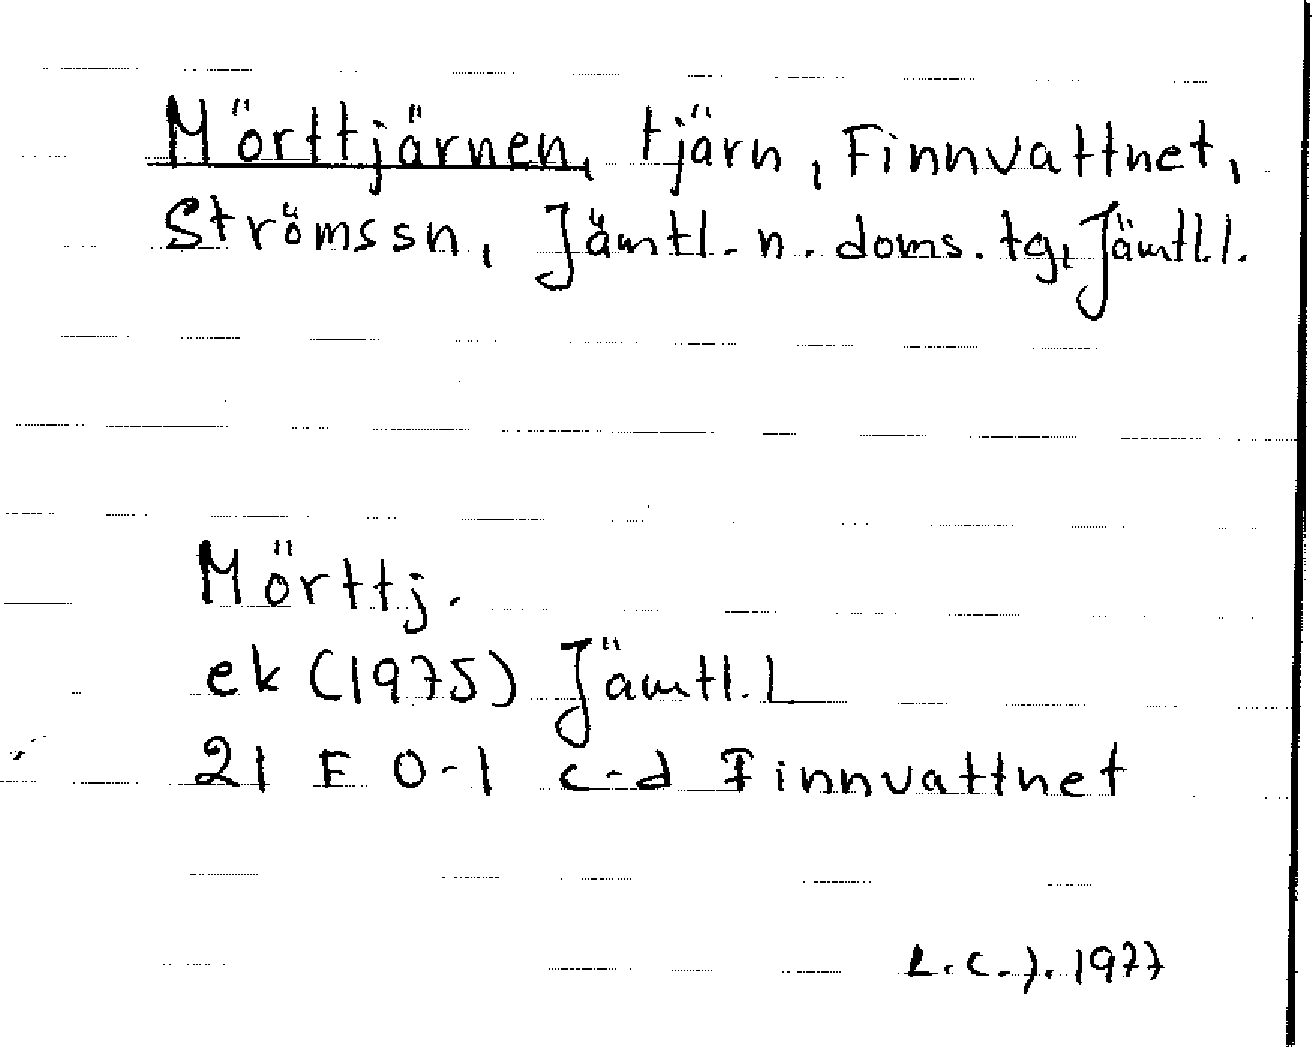 Mörttjärnen, tjärn, Finnvattnet,
Strömssn, Jämtl. n. doms. tg, Jämtl.l.
Mörttj.
ek (1975) Jämtl. L
21 E 0-1 c-d Finnvattnet
L.C.J. 1977